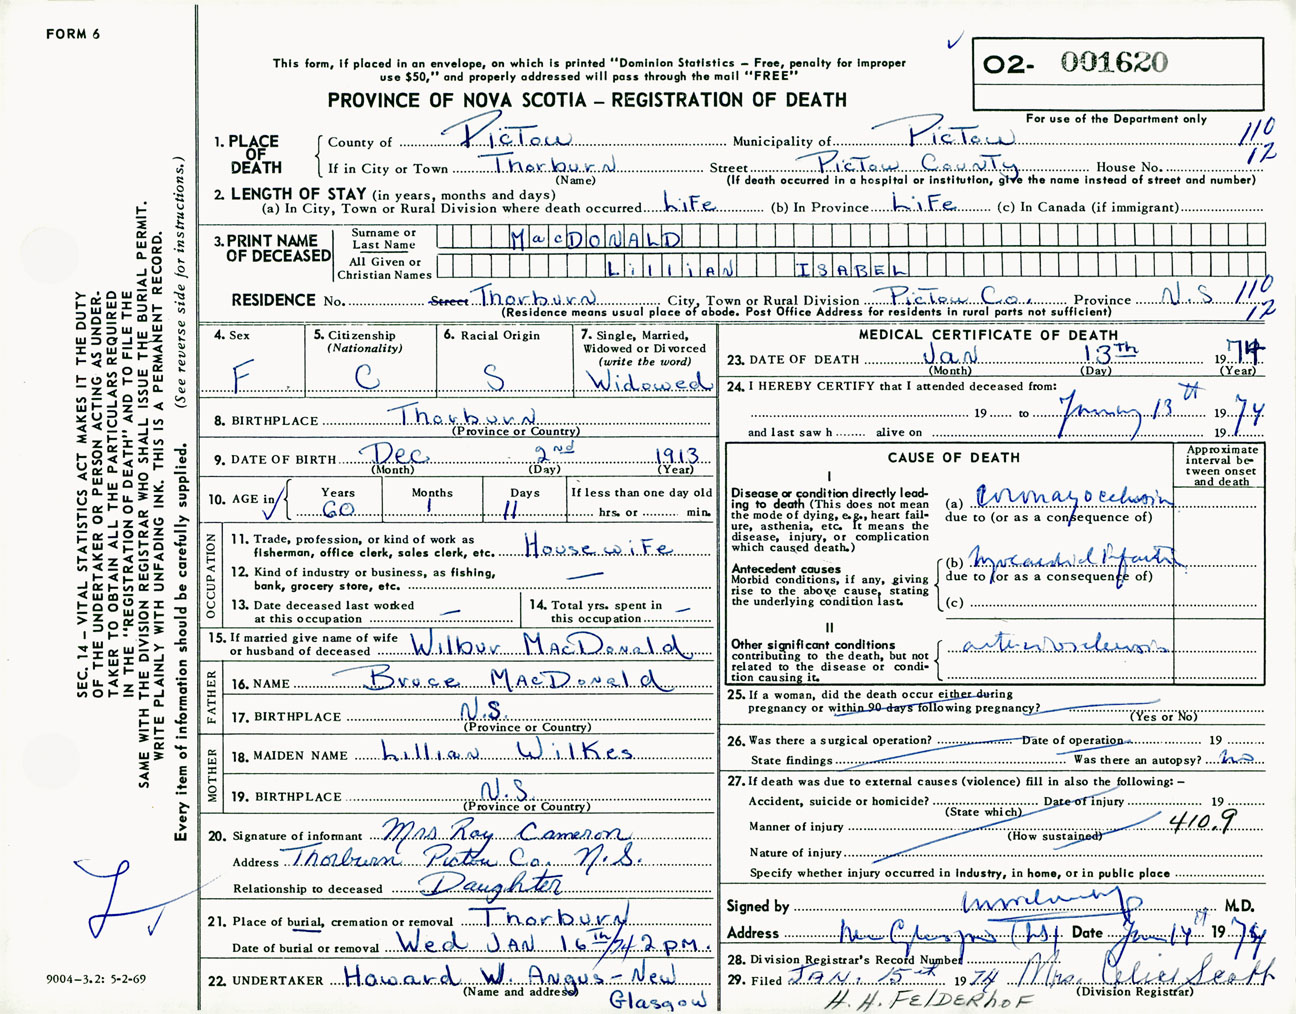 FORM 6
This form, if placed in an envelope, on which is printed "Dominion Statistics – Free, penalty for improper
use $50," and properly addressed will pass through the mail "FREE"
PROVINCE OF NOVA SCOTIA – REGISTRATION OF DEATH
02- 001620
For use of the Department only
SEC. 14 – VITAL STATISTICS ACT MAKES IT THE DUTY
OF THE UNDERTAKER OR PERSON ACTING AS UNDER-
TAKER TO OBTAIN ALL THE PARTICULARS REQUIRED
IN THE "REGISTRATION OF DEATH" AND TO FILE THE
SAME WITH THE DIVISION REGISTRAR WHO SHALL ISSUE THE BURIAL PERMIT.
WRITE PLAINLY WITH UNFADING INK. THIS IS A PERMANENT RECORD.
Every item of information should be carefully supplied. (See reverse side for instructions.)
1. PLACE OF DEATH
County of Pictou Municipality of Pictou 110
If in City or Town Thorburn Street Pictou County House No. 12
(Name) (If death occurred in a hospital or institution, give the name instead of street and number)
2. LENGTH OF STAY (in years, months and days)
(a) In City, Town or Rural Division where death occurred Life (b) In Province Life (c) In Canada (if immigrant)
3. PRINT NAME OF DECEASED
Surname or Last Name MacDONALD
All Given or Christian Names LilliAN ISABEL
RESIDENCE No. Street Thorburn City, Town or Rural Division Pictou Co. Province N.S 110
(Residence means usual place of abode. Post Office Address for residents in rural parts not sufficient) 12
4. Sex F
5. Citizenship (Nationality) C
6. Racial Origin S
7. Single, Married, Widowed or Divorced (write the word) Widowed
8. BIRTHPLACE Thorburn
(Province or Country)
9. DATE OF BIRTH Dec 2nd 1913
(Month) (Day) (Year)
10. AGE in Years 60 Months 1 Days 11 If less than one day old hrs. or min.
OCCUPATION
11. Trade, profession, or kind of work as
fisherman, office clerk, sales clerk, etc. Housewife
12. Kind of industry or business, as fishing,
bank, grocery store, etc. —
13. Date deceased last worked
at this occupation —
14. Total yrs. spent in
this occupation —
15. If married give name of wife
or husband of deceased Wilbur MacDonald
FATHER
16. NAME Bruce MacDonald
17. BIRTHPLACE N.S.
(Province or Country)
MOTHER
18. MAIDEN NAME Lillian Wilkes
19. BIRTHPLACE N.S.
(Province or Country)
20. Signature of informant Mrs Ray Cameron
Address Thorburn Pictou Co. N.S.
Relationship to deceased Daughter
21. Place of burial, cremation or removal Thorburn
Date of burial or removal Wed JAN 16th/74 2 P.M.
22. UNDERTAKER Howard W. Angus – New
(Name and address) Glasgow
MEDICAL CERTIFICATE OF DEATH
23. DATE OF DEATH Jan 13th 1974
(Month) (Day) (Year)
24. I HEREBY CERTIFY that I attended deceased from:
19 to January 13th 1974
and last saw h alive on 19
CAUSE OF DEATH
Approximate interval be-
tween onset
and death
I
Disease or condition directly lead-
ing to death (This does not mean
the mode of dying, e.g., heart fail-
ure, asthenia, etc. It means the
disease, injury, or complication
which caused death.)
(a) coronary occlusion
due to (or as a consequence of)
Antecedent causes
Morbid conditions, if any, giving
rise to the above cause, stating
the underlying condition last.
(b) Myocardial Infarction
due to (or as a consequence of)
(c)
II
Other significant conditions
contributing to the death, but not
related to the disease or condi-
tion causing it.
arteriosclerosis
25. If a woman, did the death occur either during
pregnancy or within 90 days following pregnancy?
(Yes or No)
26. Was there a surgical operation? Date of operation 19
State findings Was there an autopsy? no
27. If death was due to external causes (violence) fill in also the following: –
Accident, suicide or homicide? Date of injury 19
(State which)
Manner of injury 410.9
(How sustained)
Nature of injury
Specify whether injury occurred in industry, in home, or in public place
Signed by M.D.
Address New Glasgow (NS) Date Jan 14th 1974
28. Division Registrar's Record Number
29. Filed JAN. 15th 1974 Mrs. Celia Scott
(Division Registrar)
H. H. FELDERHOF
9004-3.2: 5-2-69